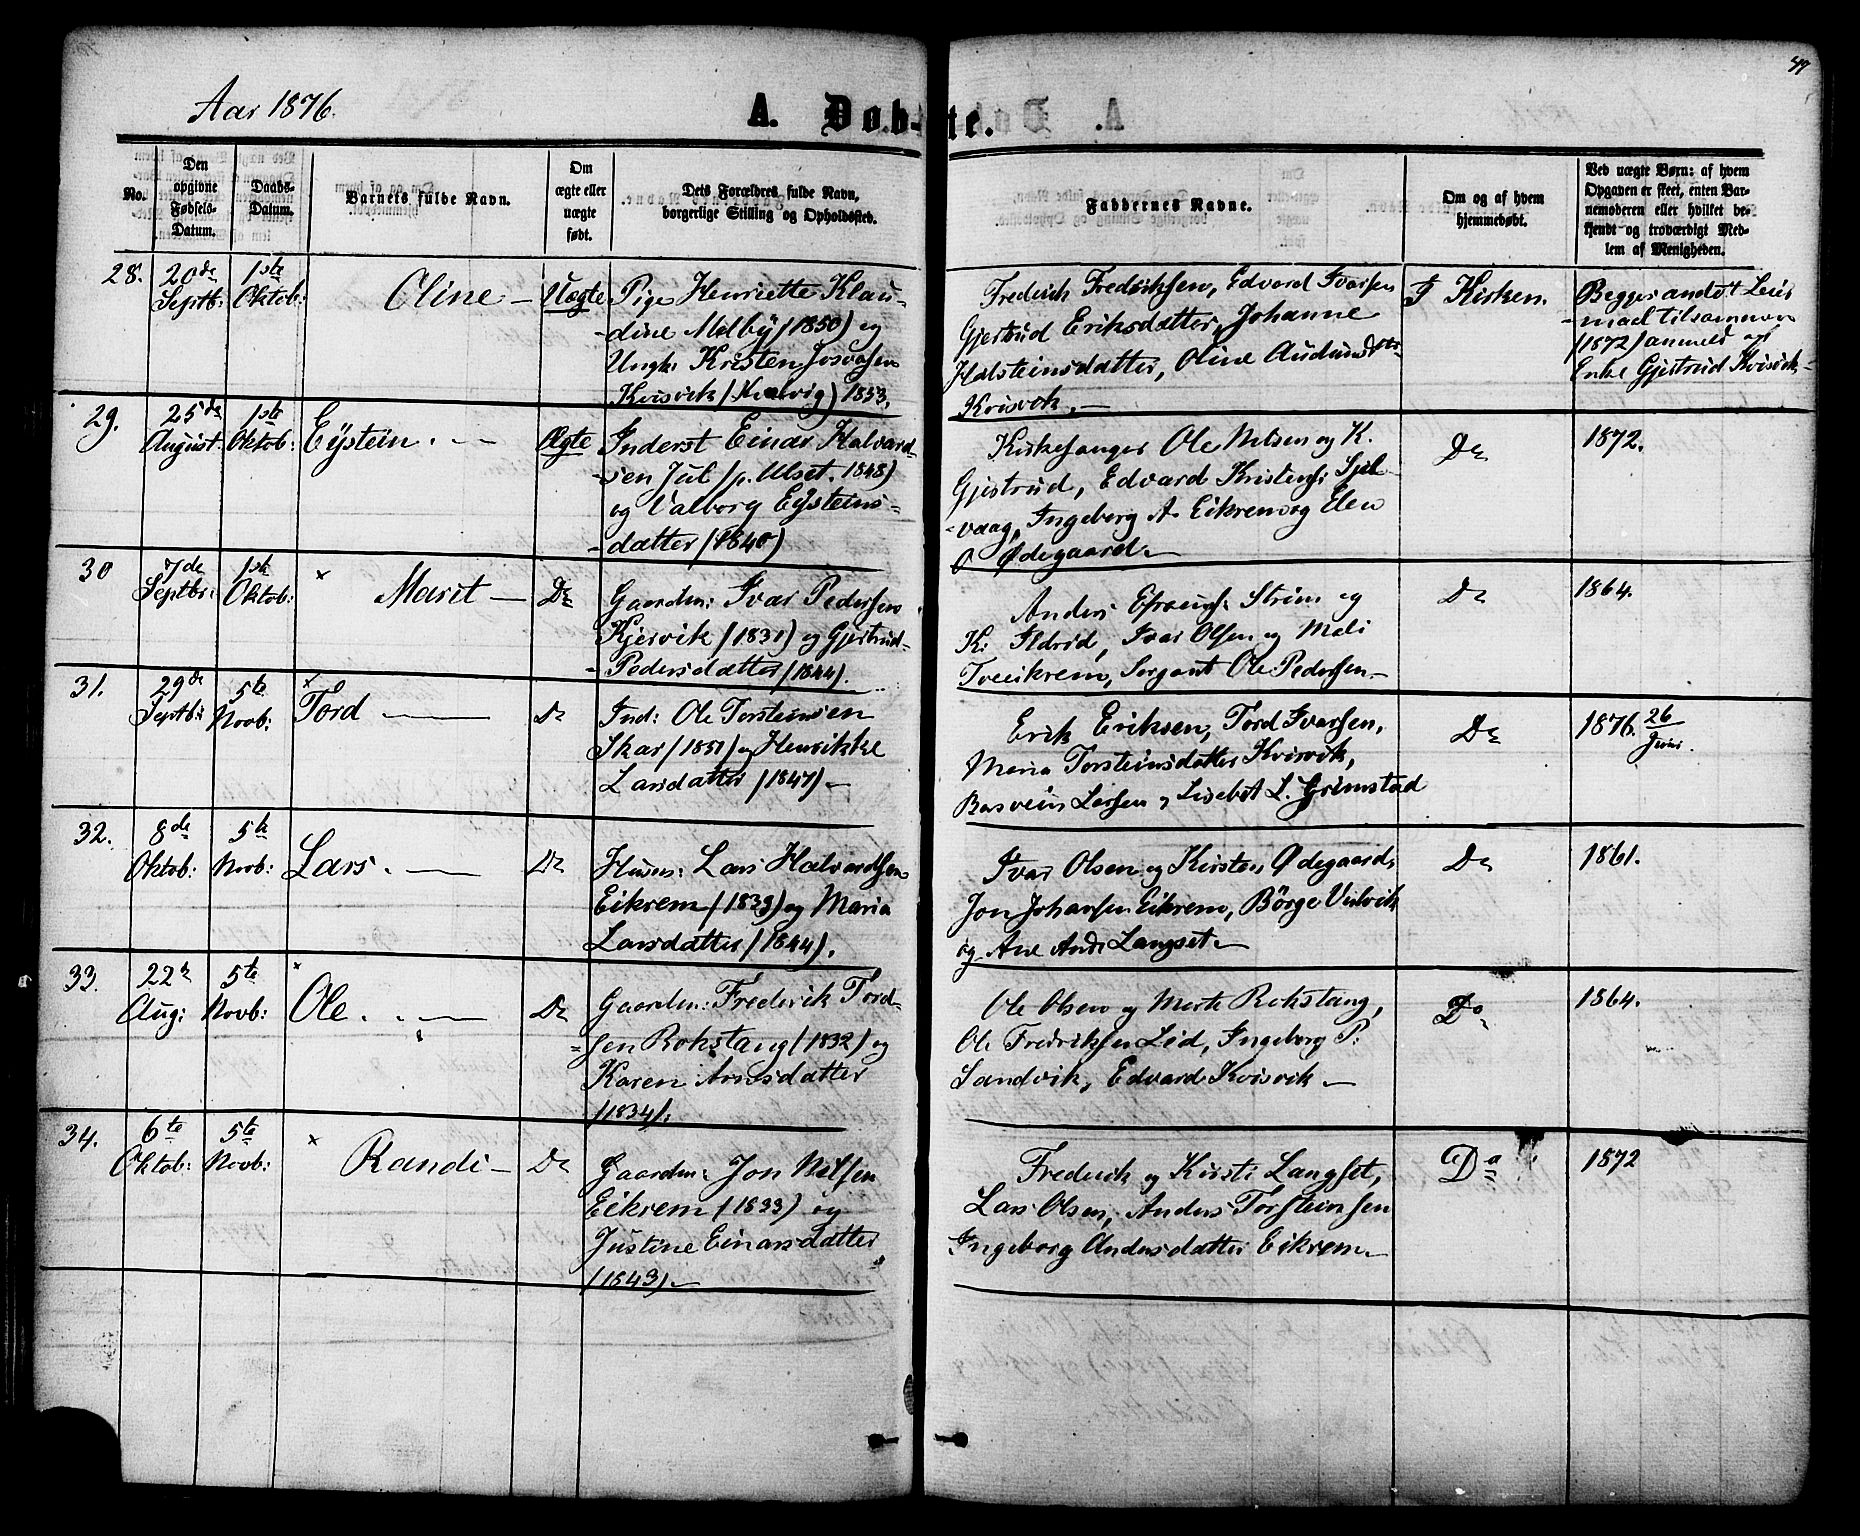 49
Aar 1876.
A. Døb-te.
No.
Den opgivne Fødsels-Datum.
Daabs-Datum.
Barnets fulde Navn.
Om ægte eller uægte født.
Dets Forældres fulde Navn, borgerlige Stilling og Opholdssted.
Faddernes Navne.
Om og af hvem hjemmedøbt.
Ved uægte Børn: af hvem Opgaven er skeet, enten Barnemoderen eller hvilket bekjendt og troværdigt Medlem af Menigheden.
28.
20de Septb:
1ste Oktob:
Oline —
Uægte
Pige Henriette Klau-
-dine Melby (1850) og
Ungk: Kristen Josvasen
Kvisvik (Halvig) 1853.
Frederich Fredriksen, Edvard Ivarsen
Gjertrud Eriksdatter, Johanne
Halsteinsdatter, Oline Audunsdtr
Kvisvik. —
I Kirken.
Begges andet Leier
-maal tilsammen
(1872) anmeld af
Enke Gjertrud Kvisvik,
29.
25de August.
1ste Oktob:
Eystein. —
Ægte
Inderst Einar Halvard-
-sen Jul (p. Ulset. 1848)
og Valborg Eysteins-
-datter (1840)
Kirkesanger Ole Nilsen og K.
Gjertrud, Edvard Kristens: Sjøl-
-vaag, Ingeborg A. Eikrem og Elen
O Ødegaard —
Do
1872.
30
7de Septbr:
1ste Oktob:
× Marit —
Do
Gaardm: Ivar Pedersen
Kjersvik (1831) og Gjertrud
-Pedersdatter (1844).
Anders Efraims: Strøm og
K: Ildrid, Ivar Olsen og Mali
Tveeikrem, Sergant Ole Pedersen —
Do
1864.
31.
29de Septb:
5te Novb:
× Tord —
Do
Ind: Ole Torsteinsen
Skar (1851) og Henrikke
Larsdatter (1847) —
Erik Eriksen, Tord Ivarsen,
Maria Torsteinsdatter Kvisvik,
Larsen og Lisebet L. Grimstad
Do
1876. 26/Juni.
32.
8de Oktob:
5te Novb:
Lars. —
Do
Husm: Lars Halvardsen
Eikrem (1839) og Maria
Larsdatter (1844).
Ivar Olsen og Kirsten Ødegaard,
Jon Johansen Eikrem, Børge
og Ane Ands Langset —
Do
1861.
33.
22de Aug:
5te Novb:
× Ole. —
Do
Gaardm: Frederik Tord-
-sen Rokstang (1832) og
Karen Arnsdatter
(1834).
Ole Olsen og Marte Rokstang,
Ole Fredriksen Lid, Ingeborg P:
Sandvik, Edvard Kvisvik —
Do
1864.
34.
6te Oktob:
5te Novb:
× Randi —
Do
Gaardm: Jon Nilsen
Eikrem (1833) og
Justine Einarsdatter
(1843) —
Frederik og Kirsti Langset,
Lars Olsen, Anders Torsteinsen
Ingeborg Andersdatter Eikrem —
Do
1872